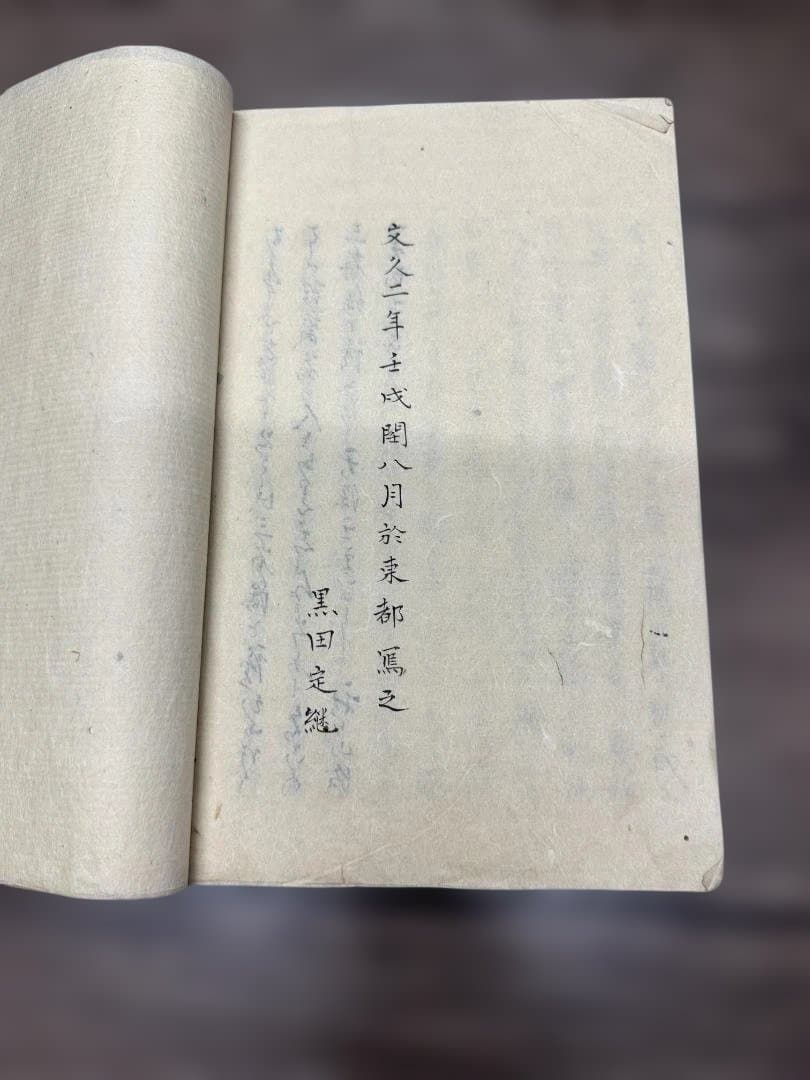 文久二年壬戌閏八月於東都寫之
黒田定継